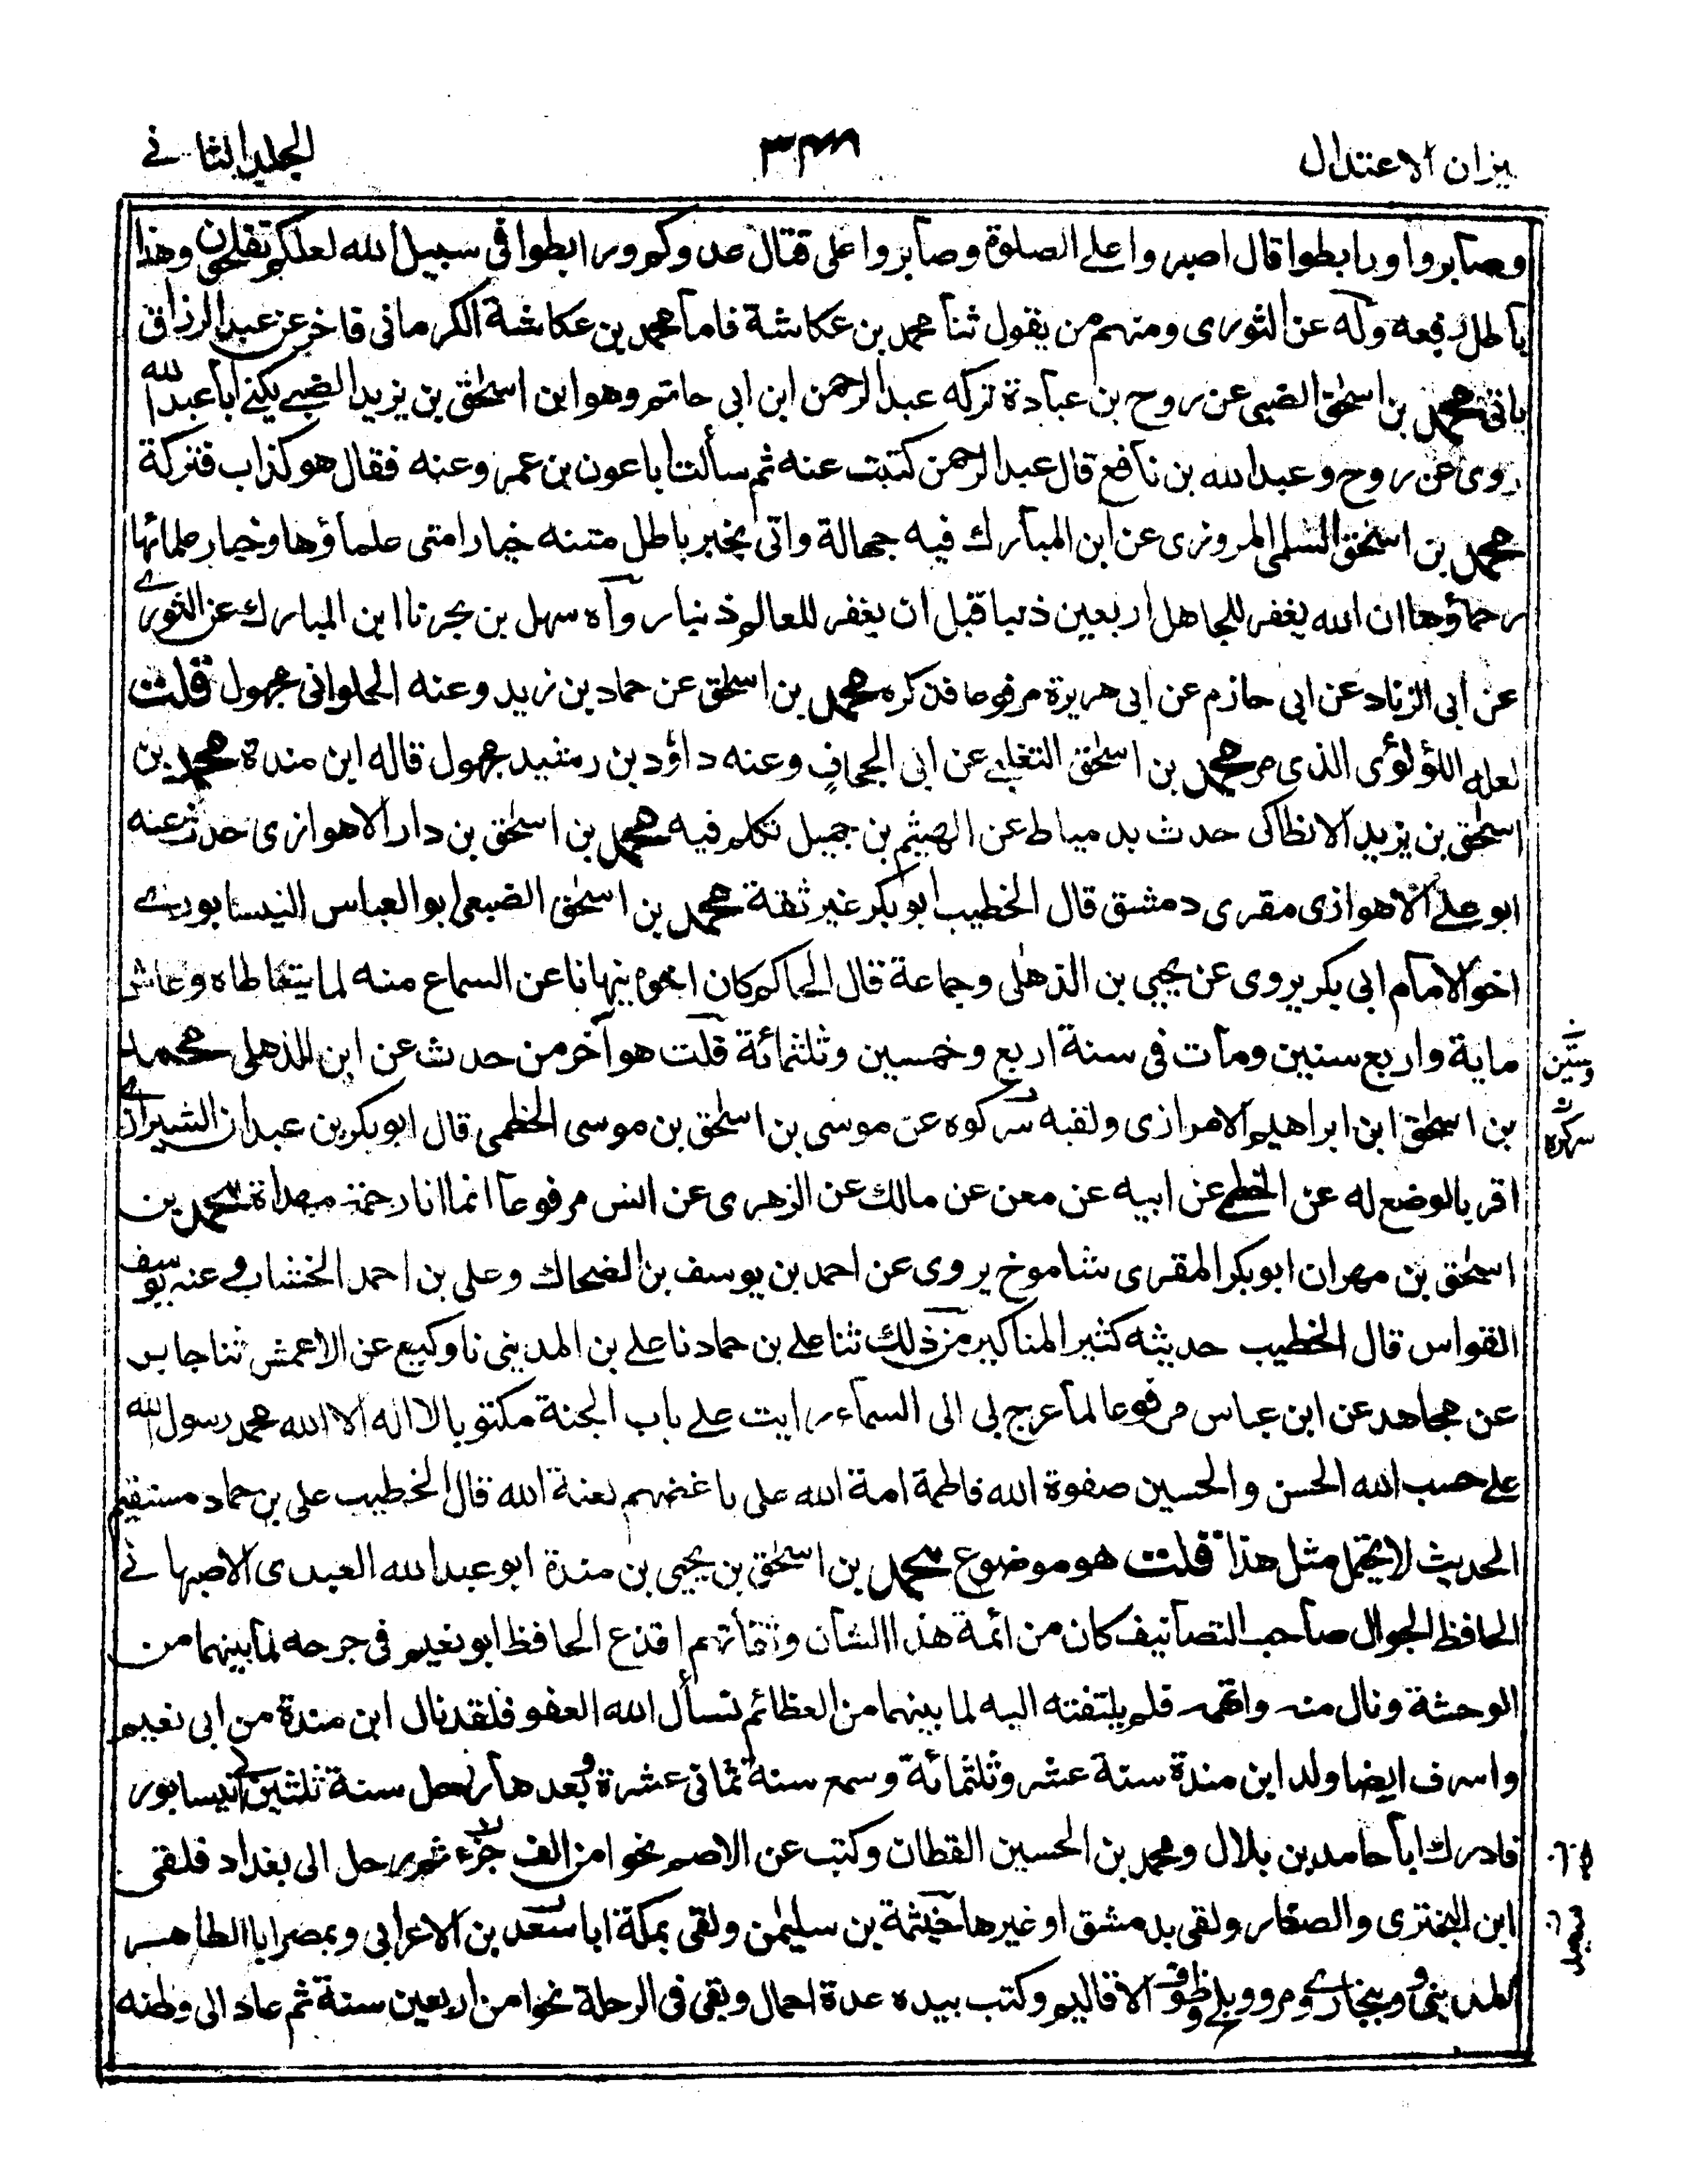 ميزان الاعتدال
الجلد الثاني
وصابروا ورابطوا قال اصبروا على الصلوة وصابروا على قتال عدوكم ورابطوا في سبيل الله لعلكم تفلحون وهذا
باطل رفعه وله عن الثوري ومنهم من يقول ثنا محمد بن عكاشة فاما محمد بن عكاشة الكرماني فاخر عن عبد الرزاق
ياتي محمد بن اسحق الضبي عن روح بن عبادة تركه عبد الرحمن ابن ابي حاتم وهو ابن اسحق بن يزيد الضبي يكنى ابا عبد الله
روى عن روح وعبد الله بن نافع قال عبد الرحمن كتبت عنه ثم سألت ابا عون بن عمر وعنه فقال هو كذاب فتركة
محمد بن اسحق السلمي المروزي عن ابن المبارك فيه جهالة واتى بخبر باطل متنه خيار امتى علماؤها وخيار علمائها
رحماؤها ان الله يغفر للجاهل اربعين ذنبا قبل ان يغفر للعالم ذنبا رواه سهل بن بحر نا ابن المبارك عن الثوري
عن ابي الزناد عن ابي حازم عن ابي هريرة مرفوعا فذكره محمد بن اسحق عن حماد بن زيد وعنه الحلواني مجهول قلت
لعله اللؤلؤى الذى مر محمد بن اسحق التغلبي عن ابي الجحاف وعنه داؤد بن رمفيد مجهول قاله ابن مندة محمد بن
اسحق بن يزيد الانطاكى حدث بدمياط عن الهيثم بن جميل تكلم فيه محمد بن اسحق بن دار الاهوازى حدث عنه
ابو على الاهوازى مقرى دمشق قال الخطيب ابو بكر غير ثقة محمد بن اسحق الضبعى ابو العباس النيسابوري
اخو الامام ابى بكر يروى عن يحيى بن الذهلى وجماعة قال الحاكم كان اخوه ينهانا عن السماع منه لما يتعاطاه وعاش
ماية واربع سنين ومات فى سنة اربع وخمسين وثلثمائة قلت هو آخر من حدث عن ابن الذهلى محمد
وستين
بن اسحق ابن ابراهيم الامرازى ولقبه سركوه عن موسى بن اسحق بن موسى الخطمى قال ابو بكر بن عبدان الشيرازي
سركره
اقر بالوضع له عن الخطمي عن ابيه عن معن عن مالك عن الزهرى عن انس مرفوعا انما انا رحمة مهداة محمد بن
اسحق بن مهران ابو بكر المقرى شاموخ يروى عن احمد بن يوسف بن الضحاك وعلى بن احمد الخشاب وعنه يوسف
القواس قال الخطيب حديثه كثير المناكير من ذلك ثنا على بن حماد نا على بن المدينى نا وكيع عن الاعمش ثنا جابر
عن مجاهد عن ابن عباس مرفوعا لما عرج بى الى السماء رايت على باب الجنة مكتوبا لا اله الا الله محمد رسول الله
على حسب الله الحسن والحسين صفوة الله فاطمة امة الله على باغضهم لعنة الله قال الخطيب على بن حماد مستقيم
الحديث لا يحتمل مثل هذا قلت هو موضوع محمد بن اسحق بن يحيى بن مندة ابو عبد الله العبدى الاصبهاني
الحافظ الجوال صاحب التصانيف كان من ائمة هذا الشان وثقاتهم اقذع الحافظ ابو نعيم فى جرحه لما بينهما من
الوحشة ونال منه واتهمه فلم يلتفته اليه لما بينهما من العظائم نسأل الله العفو فلقد نال ابن مندة من ابى نعيم
واسرف ايضا ولد ابن مندة سنة عشر وثلثمائة وسمع سنة ثمانى عشرة وبعدها رحل سنة ثلثين الى نيسابور
فادرك ابا حامد بن بلال ومحمد بن الحسين القطان وكتب عن الاصم نحوا من الف جزء ثم رحل الى بغداد فلقى
ابن البخترى والصفار ولقى بدمشق او غيرها خيثمة بن سليمن ولقى بمكة ابا سعد بن الاعرابى وبمصر ابا الطاهر
المدينى وببخارى ومرو وبلخ وطوف الاقاليم وكتب بيده عدة احمال وبقى فى الرحلة نحوا من اربعين سنة ثم عاد الى وطنه